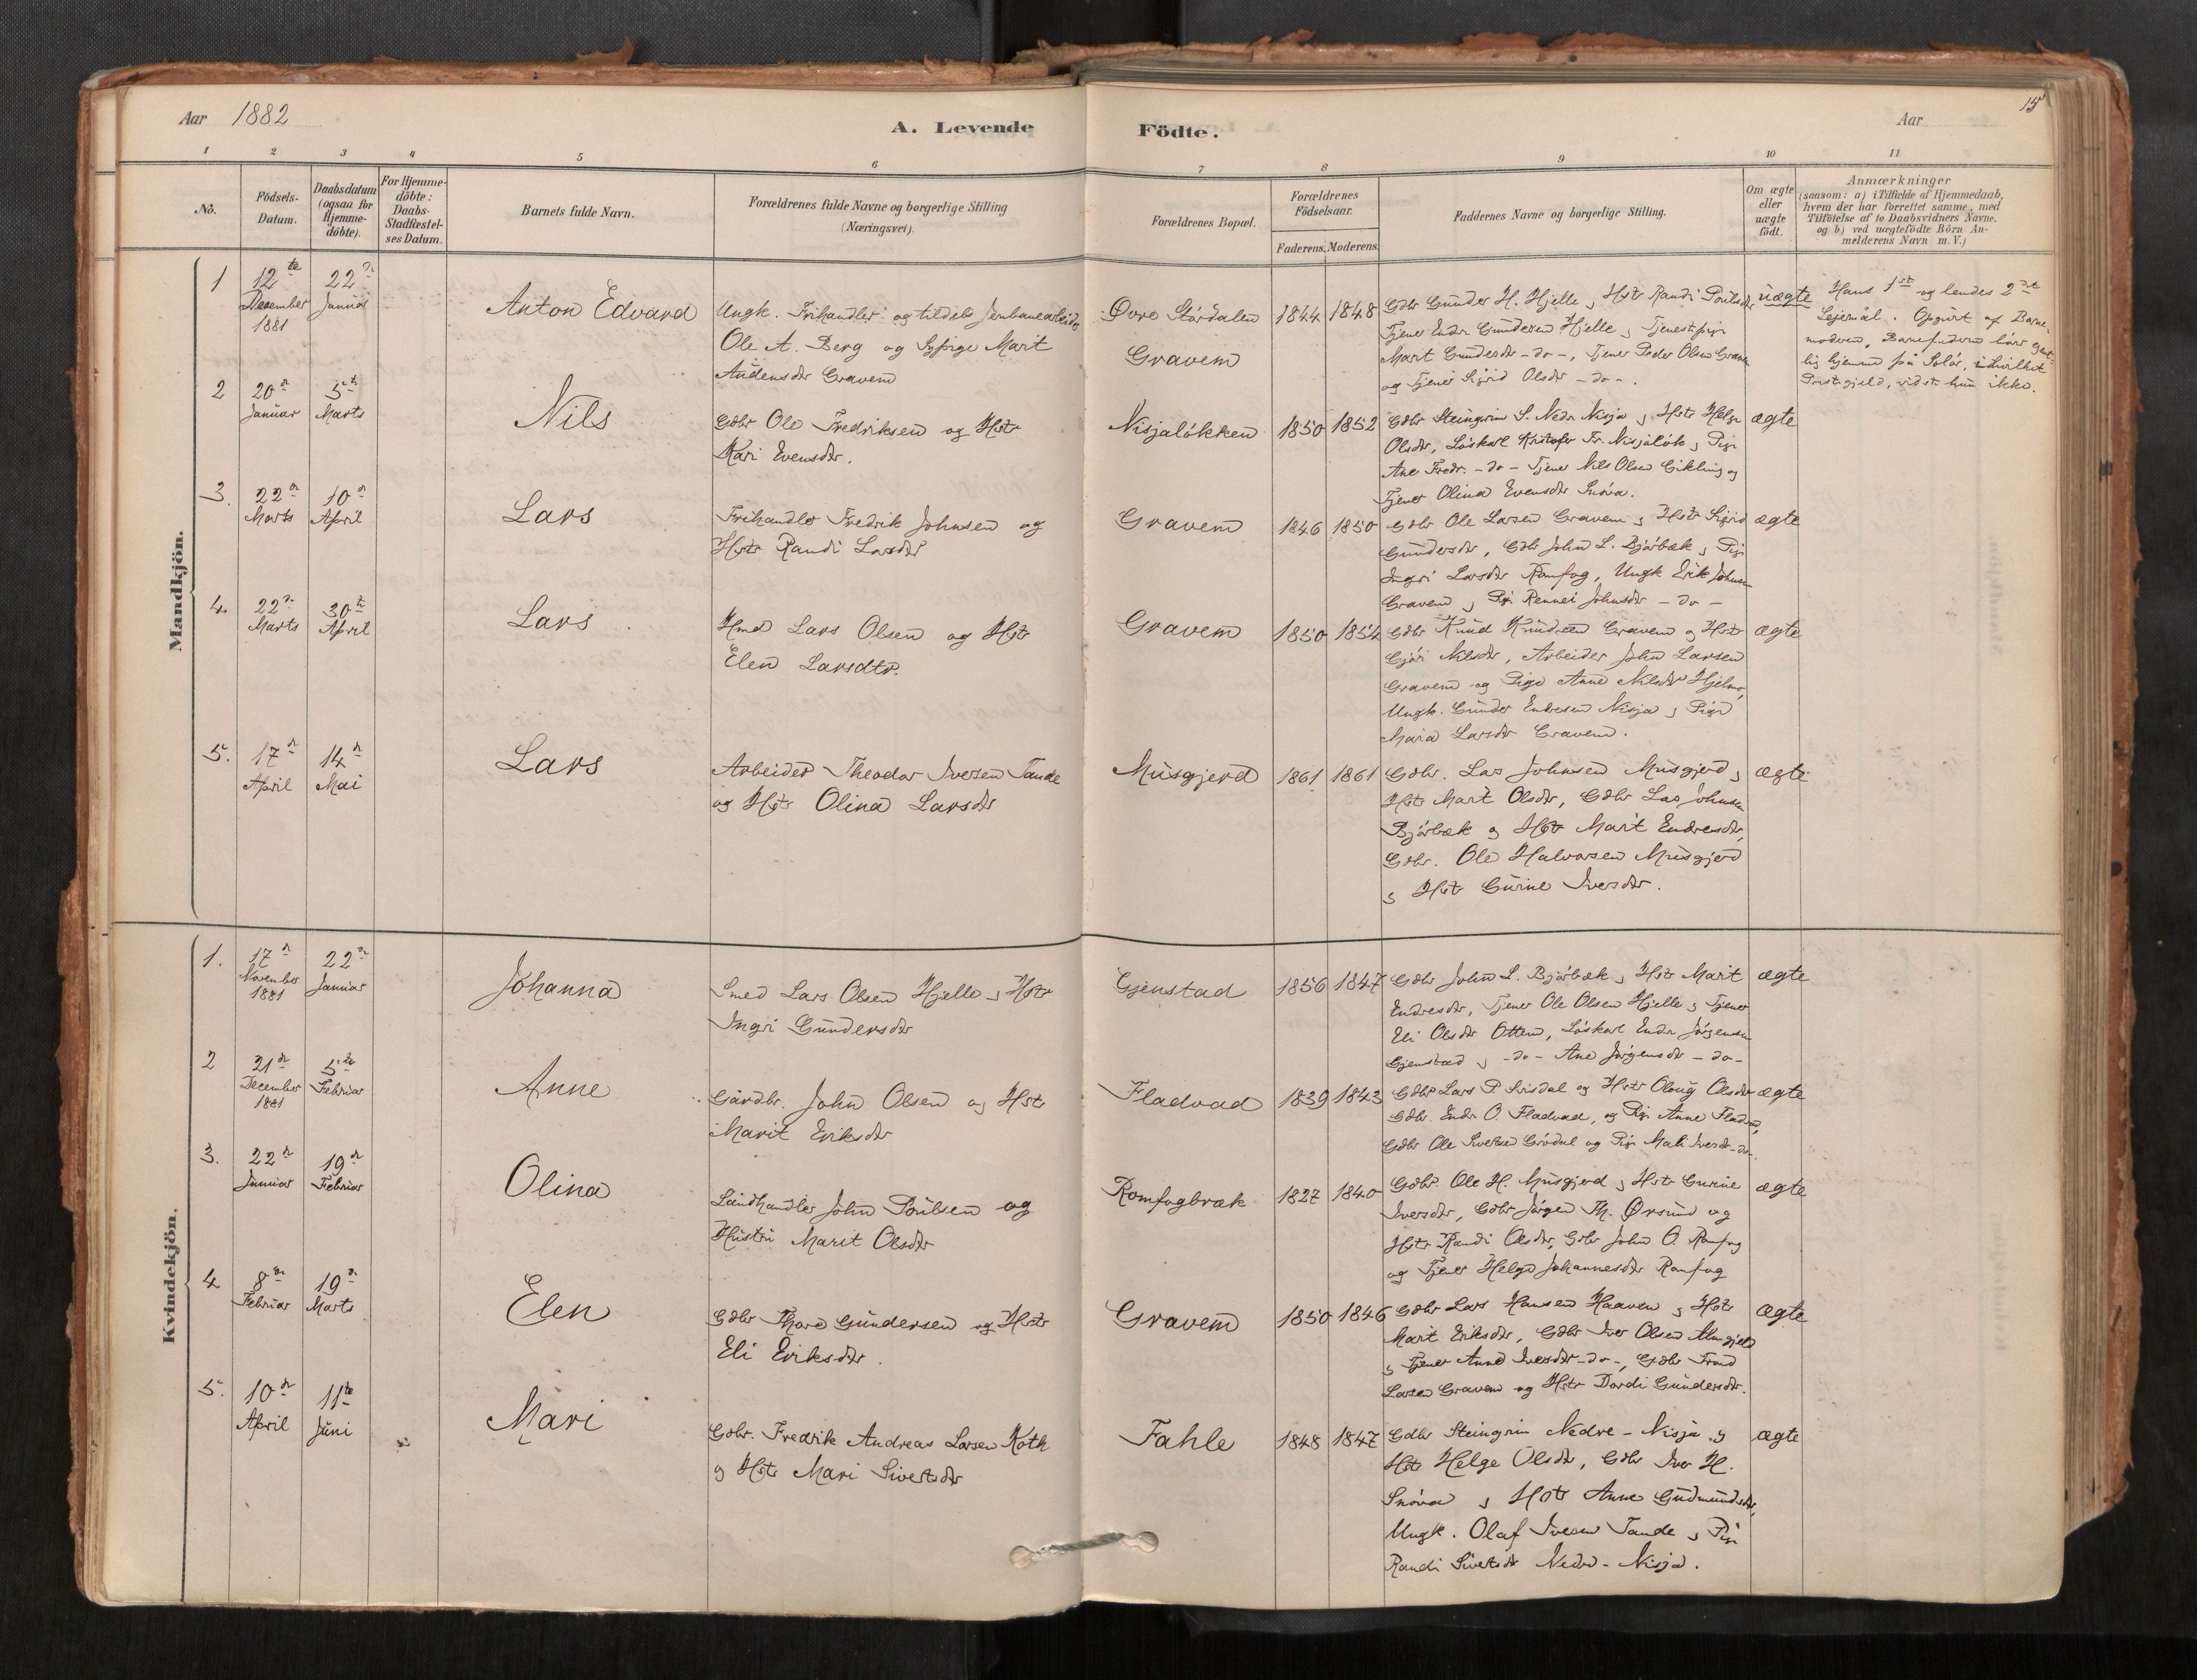 Aar 1882
A. Levende Födte.
Aar
15
1 2 3 4 5 6 7 8 9 10 11
No.
Födsels-Datum.
Daabsdatum (ogsaa for Hjemme-döbte).
For Hjemme-döbte: Daabs-Stadfæstel-ses Datum.
Barnets fulde Navn.
Forældrenes fulde Navne og borgerlige Stilling (Næringsvei).
Forældrenes Bopæl.
Forældrenes Födselsaar.
Faderens. Moderens.
Faddernes Navne og borgerlige Stilling.
Om ægte eller uægte födt.
Anmærkninger
(saasom: a) i Tilfælde af Hjemmedaab,
hvem der har forrettet samme, med
Tilföielse af to Daabsvidners Navne,
og b) ved uægtefödte Börn An-
melderens Navn m.V.)
Mandkjön.
1
12te December 1881
22de Januar
Anton Edvard
Ungk. Frihandler og tildels Jernbanearbeider
Ole A. Berg og Sypige Marit
Audensdtr Gravem
Övre Stördalen
Gravem
1844 1848
Gdbr Gunder H. Hjelle, Hstr Randi Poulsdr
Tjener Endr Gundersen Hjelle, Tjenestpige
Marit Gundersdr -do-, Tjener Peder Olsen Gravem
og Tjener Sigrid Olsdr -do-.
uægte
Hans 1ste og hendes 2det
Lejermål. Opgivet af Barne-
moderen, Barnefaderen
hjemme på Solör, i hvilket
Præstgjeld, vidste hun ikke.
2
20de Januar
5te Marts
Nils
Gdbr Ole Fredriksen og Hstr
Kari Evensdr.
Nisjalökken
1850 1852
Gdbr Steingrim S. Nedr Nisja, Hstr Helge
Olsdr, Löskarl Kristofer Fr. Nisjalök, Pige
Ane Fredr. -do- Tjener Nils Olsen Gikling og
Tjener Olina Evensdr Snöva.
ægte
3.
22de Marts
10de April
Lars
Frihandler Fredrik Johnsen og
Hstr Randi Larsdtr
Gravem
1846 1850
Gdbr Ole Larsen Gravem, Hstr Sigrid
Gundersdr, Gdbr John L. Bjørbæk, Pige
Ingri Larsdr Romfog, Ungk Erik Johnsen
Gravem, Pige Rennei Johnsdr -do-
ægte
4.
22de Marts
30te April
Lars
Hmd Lars Olsen og Hstr
Elen Larsdtr.
Gravem
1850 1854
Gdbr Knud Knudsen Gravem og Hstr
Gjöri Nilsdr, Arbeider John Larsen
Gravem og Pige Anne Nilsdr Hjelmo,
Ungk. Gunder Endresen Nisja, Pige
Maria Larsdr Gravem.
ægte
5.
17de April
14de Mai
Lars
Arbeider Theodor Iversen Tande
og Hstr Olina Larsdr
Musgjerd
1861 1861
Gdbr. Lars Johnsen Musgjerd,
Hstr Marit Olsdr, Gdbr Lars Johnsen
Bjørbæk og Hstr Marit Endresdr,
Gdbr. Ole Halvorsen Musgjerd
og Hstr Gurine Iversdr.
ægte
Kvindekjön.
1.
17de November 1881
22de Januar
Johanna
Smed Lars Olsen Hjelle, Hstr
Ingri Gundersdtr
Gjenstad
1856 1847
Gdbr John L. Bjørbæk, Hstr Marit
Endresdr, Tjener Ole Olsen Hjelle, Tjener
Eli Olsdr Ottem, Löskarl Endr Jörgensen
Gjenstad, -do- Ane Jörgensdr -do-
ægte
2
31te December 1881
5te Februar
Anne
Gårdbr. John Olsen og Hstr
Marit Eriksdtr
Fladvad
1839 1843
Gdbr Lars P. Svisdal og Hstr Olaug Olsdr
Gdbr. Endr O. Fladvad, og Pige Anne Fladvad,
Gdbr Ole Sivertsen Grödal og Pige Mali Iversdr -do-.
ægte
3.
22de Januar
19de Februar
Olina
Landhandler John Poulsen og
Hustru Marit Olsdtr
Romfogbræk
1827 1840
Gdbr. Ole H. Musgjerd, Hstr Gurine
Iversdr, Gdbr Jörgen Th. Ørsund og
Hstr Randi Olsdr, Gdbr John O. Romfog
og Tjener Helge Johannesdr Romfog
ægte
4
8de Februar
19de Marts
Elen
Gdbr Thore Gundersen og Hstr
Eli Eriksdtr.
Gravem
1850 1846
Gdbr Lars Hansen Haaven, Hstr
Marit Eriksdr, Gdbr Iver Olsen
, Tjener Anne Iversdtr -do-, Gdbr Trond
Larsen Gravem og Hstr Dordi Gundersdr.
ægte
5.
10de April
11te Juni
Mari
Gdbr. Fredrik Andreas Larsen Roth
og Hstr Mari Sivertsdtr
Fahle
1848 1847
Gdbr Steingrim Nedre-Nisja og
Hstr Helge Olsdr, Gdbr Iver H.
Snöva, Hstr Anne Gudmundsdr,
Ungk. Olaf Iversen Tande, Pige
Randi Sivertsdr Nedre-Nisja.
ægte